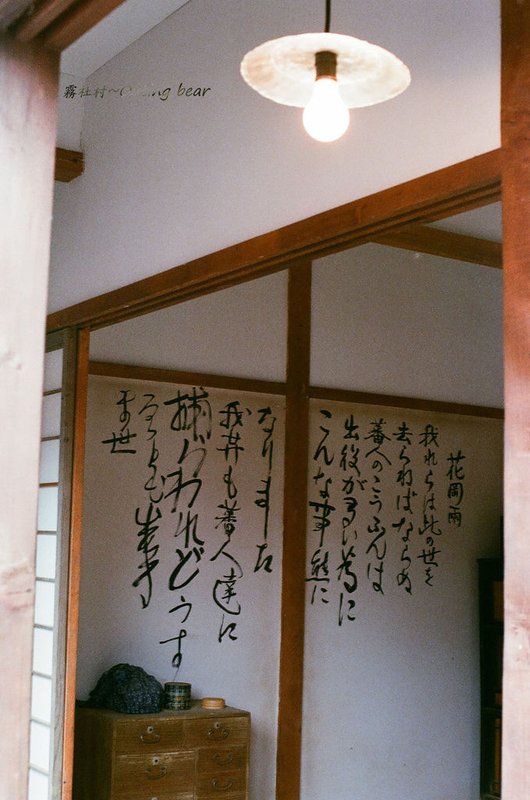 霧社村～
bear
花岡両
我れらは此の世を
去らねばならぬ
蕃人のこうふんは
出役が多い為に
こんな事態に
なりました
我等も蕃人達に
捕らわれどうす
ることも出来
ま世